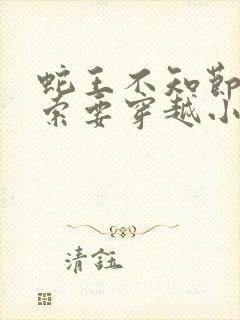 蛇王不知節
索要穿越小
清鈺